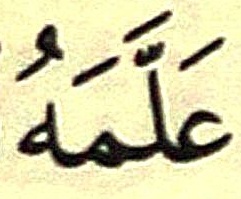 عَلَّمَهُ